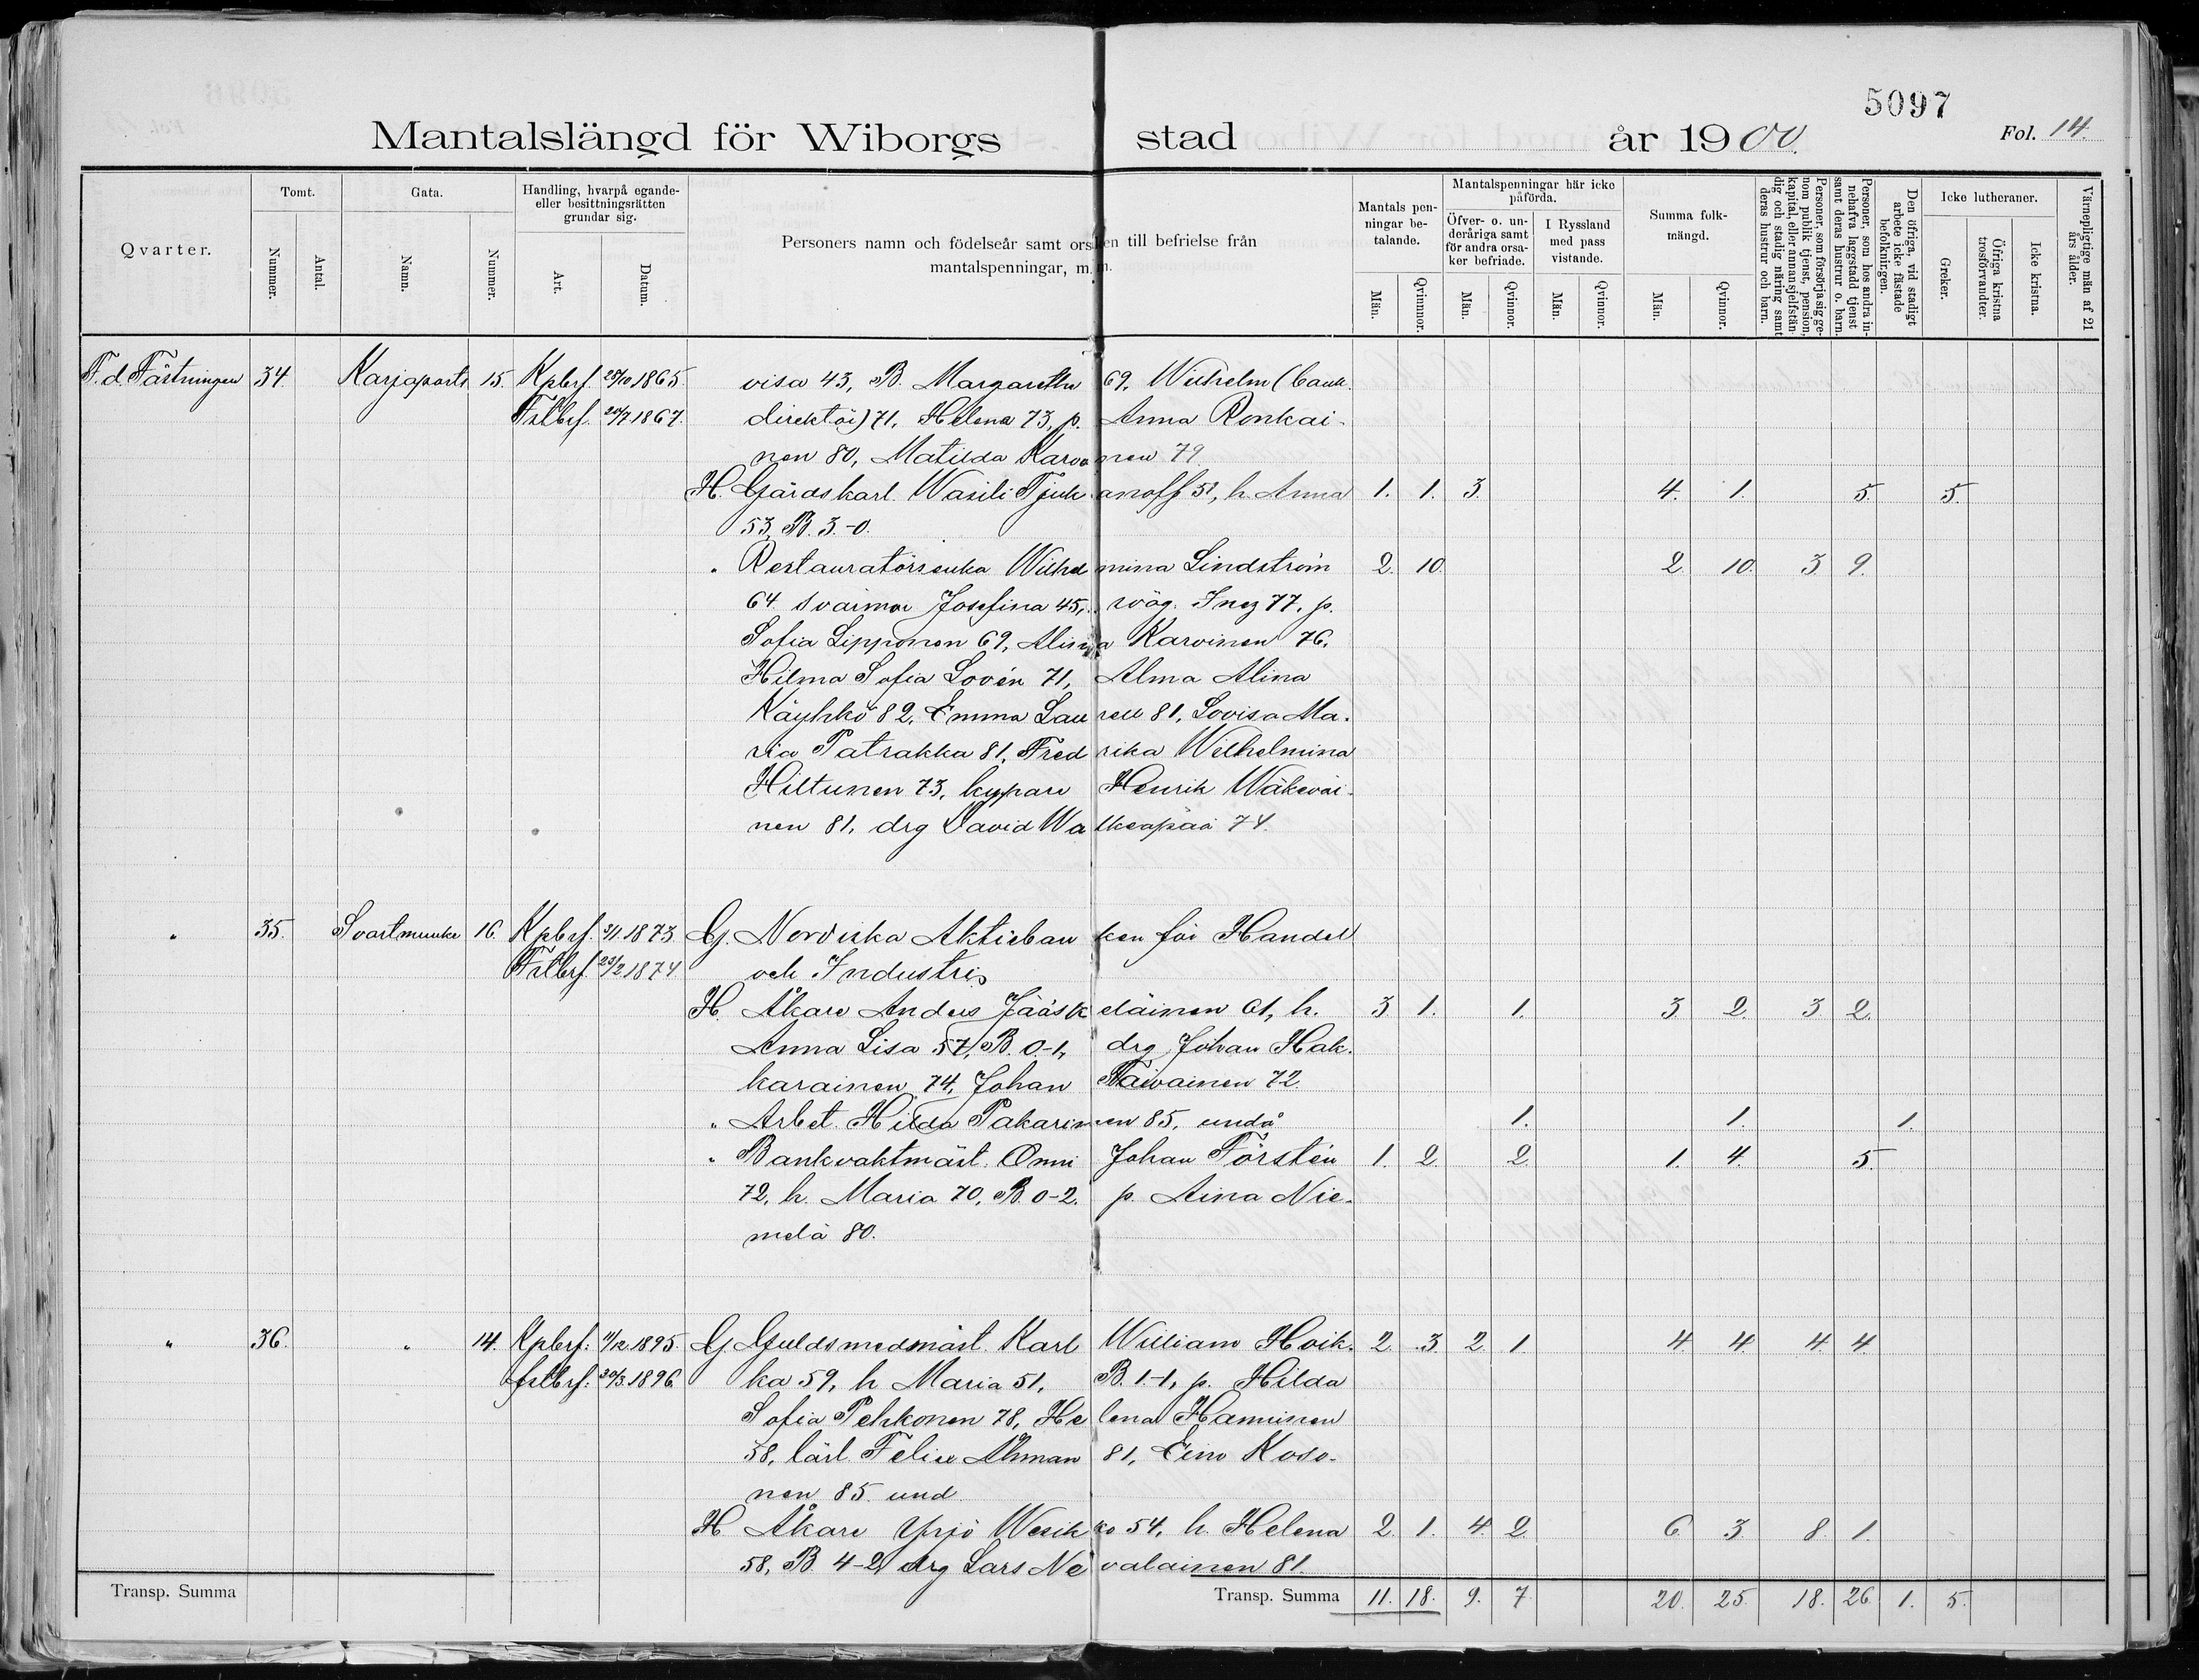 5097
Mantalslängd för Wiborgs stad år 1900. Fol. 14.
Qvarter.
Tomt.
Nummer.
Antal.
Gata.
Namn.
Nummer.
Handling, hvarpå egande-
eller besittningsrätten
grundar sig.
Art.
Datum.
Personers namn och födelseår samt orsaken till befrielse från
mantalspenningar, m. m.
Mantals pen-
ningar be-
talande.
Män.
Qvinnor.
Mantalspenningar här icke
påförda.
Öfver- o. un-
deråriga samt
för andra orsa-
ker befriade.
Män.
Qvinnor.
I Ryssland
med pass
vistande.
Män.
Qvinnor.
Summa folk-
mängd.
Män.
Qvinnor.
Personer, som försörja sig ge-
nom publik tjenst, pension,
kapital, eller annan sjelfstän-
dig och stadig näring samt
deras hustrur och barn.
Personer, som hos andra in-
nehafva laggstadd tjenst
samt deras hustrur o. barn.
Den öfriga, vid stadigt
arbete icke fästade
befolkningen.
Icke lutheraner.
Greker.
Öfriga kristna
trosförvandter.
Icke kristna.
Värnepligtige män af 21
års ålder.
F. d. Fästningen 34. Karjaports 15. Kpbrf. 28/10 1865. visa 43, B. Margaretha 69, Wilhelm (bank
Fstbrf. 20/7 1867. direktör) 71, Helena 73, p. Anna Ronkai-
nen 80, Matilda Karvonen 79
H. Gårdskarl Wasili Tjukanoff 51, h. Anna 1. 1. 3. 4. 1. 5. 5.
53, B. 3-0.
" Restauratörsenka Wilhelmina Lindström 2. 10. 2. 10. 3 9.
64 svärmor Josefina 45, svåg. Inez 77, p.
Sofia Lipponen 69, Alina Karvinen 76,
Hilma Sofia Lovén 71, Alma Alina
Käyhkö 82, Emma Laurell 81, Lovisa Ma-
ria Patrakka 81, Fredrika Wilhelmina
Hiltunen 73, kypare Henrik Wäkeväi-
nen 81, drg David Walkeapää 74.
" 35. Svartmunke 16. Kpbrf. 3/1 1873. G. Nordiska Aktiebanken för Handel
Fstbrf. 23/2 1874 och Industri,
H. Åkare Anders Jääskeläinen 61, h. 3 1. 1. 3 2. 3 2.
Anna Lisa 57, B. 0-1, drg Johan Hak-
karainen 74, Johan Taivainen 72
" Arbet. Hilda Pakarinen 85, undå 1. 1. 1.
" Bankvaktmäst. Onni Johan Törstén 1. 2. 2. 1. 4. 5.
72, h. Maria 70, B. 0-2. p. Aina Nie-
melä 80.
" 36. " 14. Kpbrf: 11/12 1895. G. Guldsmedmäst. Karl William Hoik- 2. 3 2. 1 4. 4. 4. 4.
fstbrf: 30/3 1896. ka 59, h Maria 51, B. 1-1, p. Hilda
Sofia Pehkonen 78, Helena Hanninen
58, lärl. Felix Åhman 81, Eino Koso-
nen 85 und
H Åkare Yrjö Wesikko 54, h. Helena 2. 1. 4. 2. 6. 3. 8. 1.
58, B. 4-2, drg Lars Nevalainen 81.
Transp. Summa Transp. Summa 11. 18. 9. 7. 20. 25. 18. 26 1. 5.